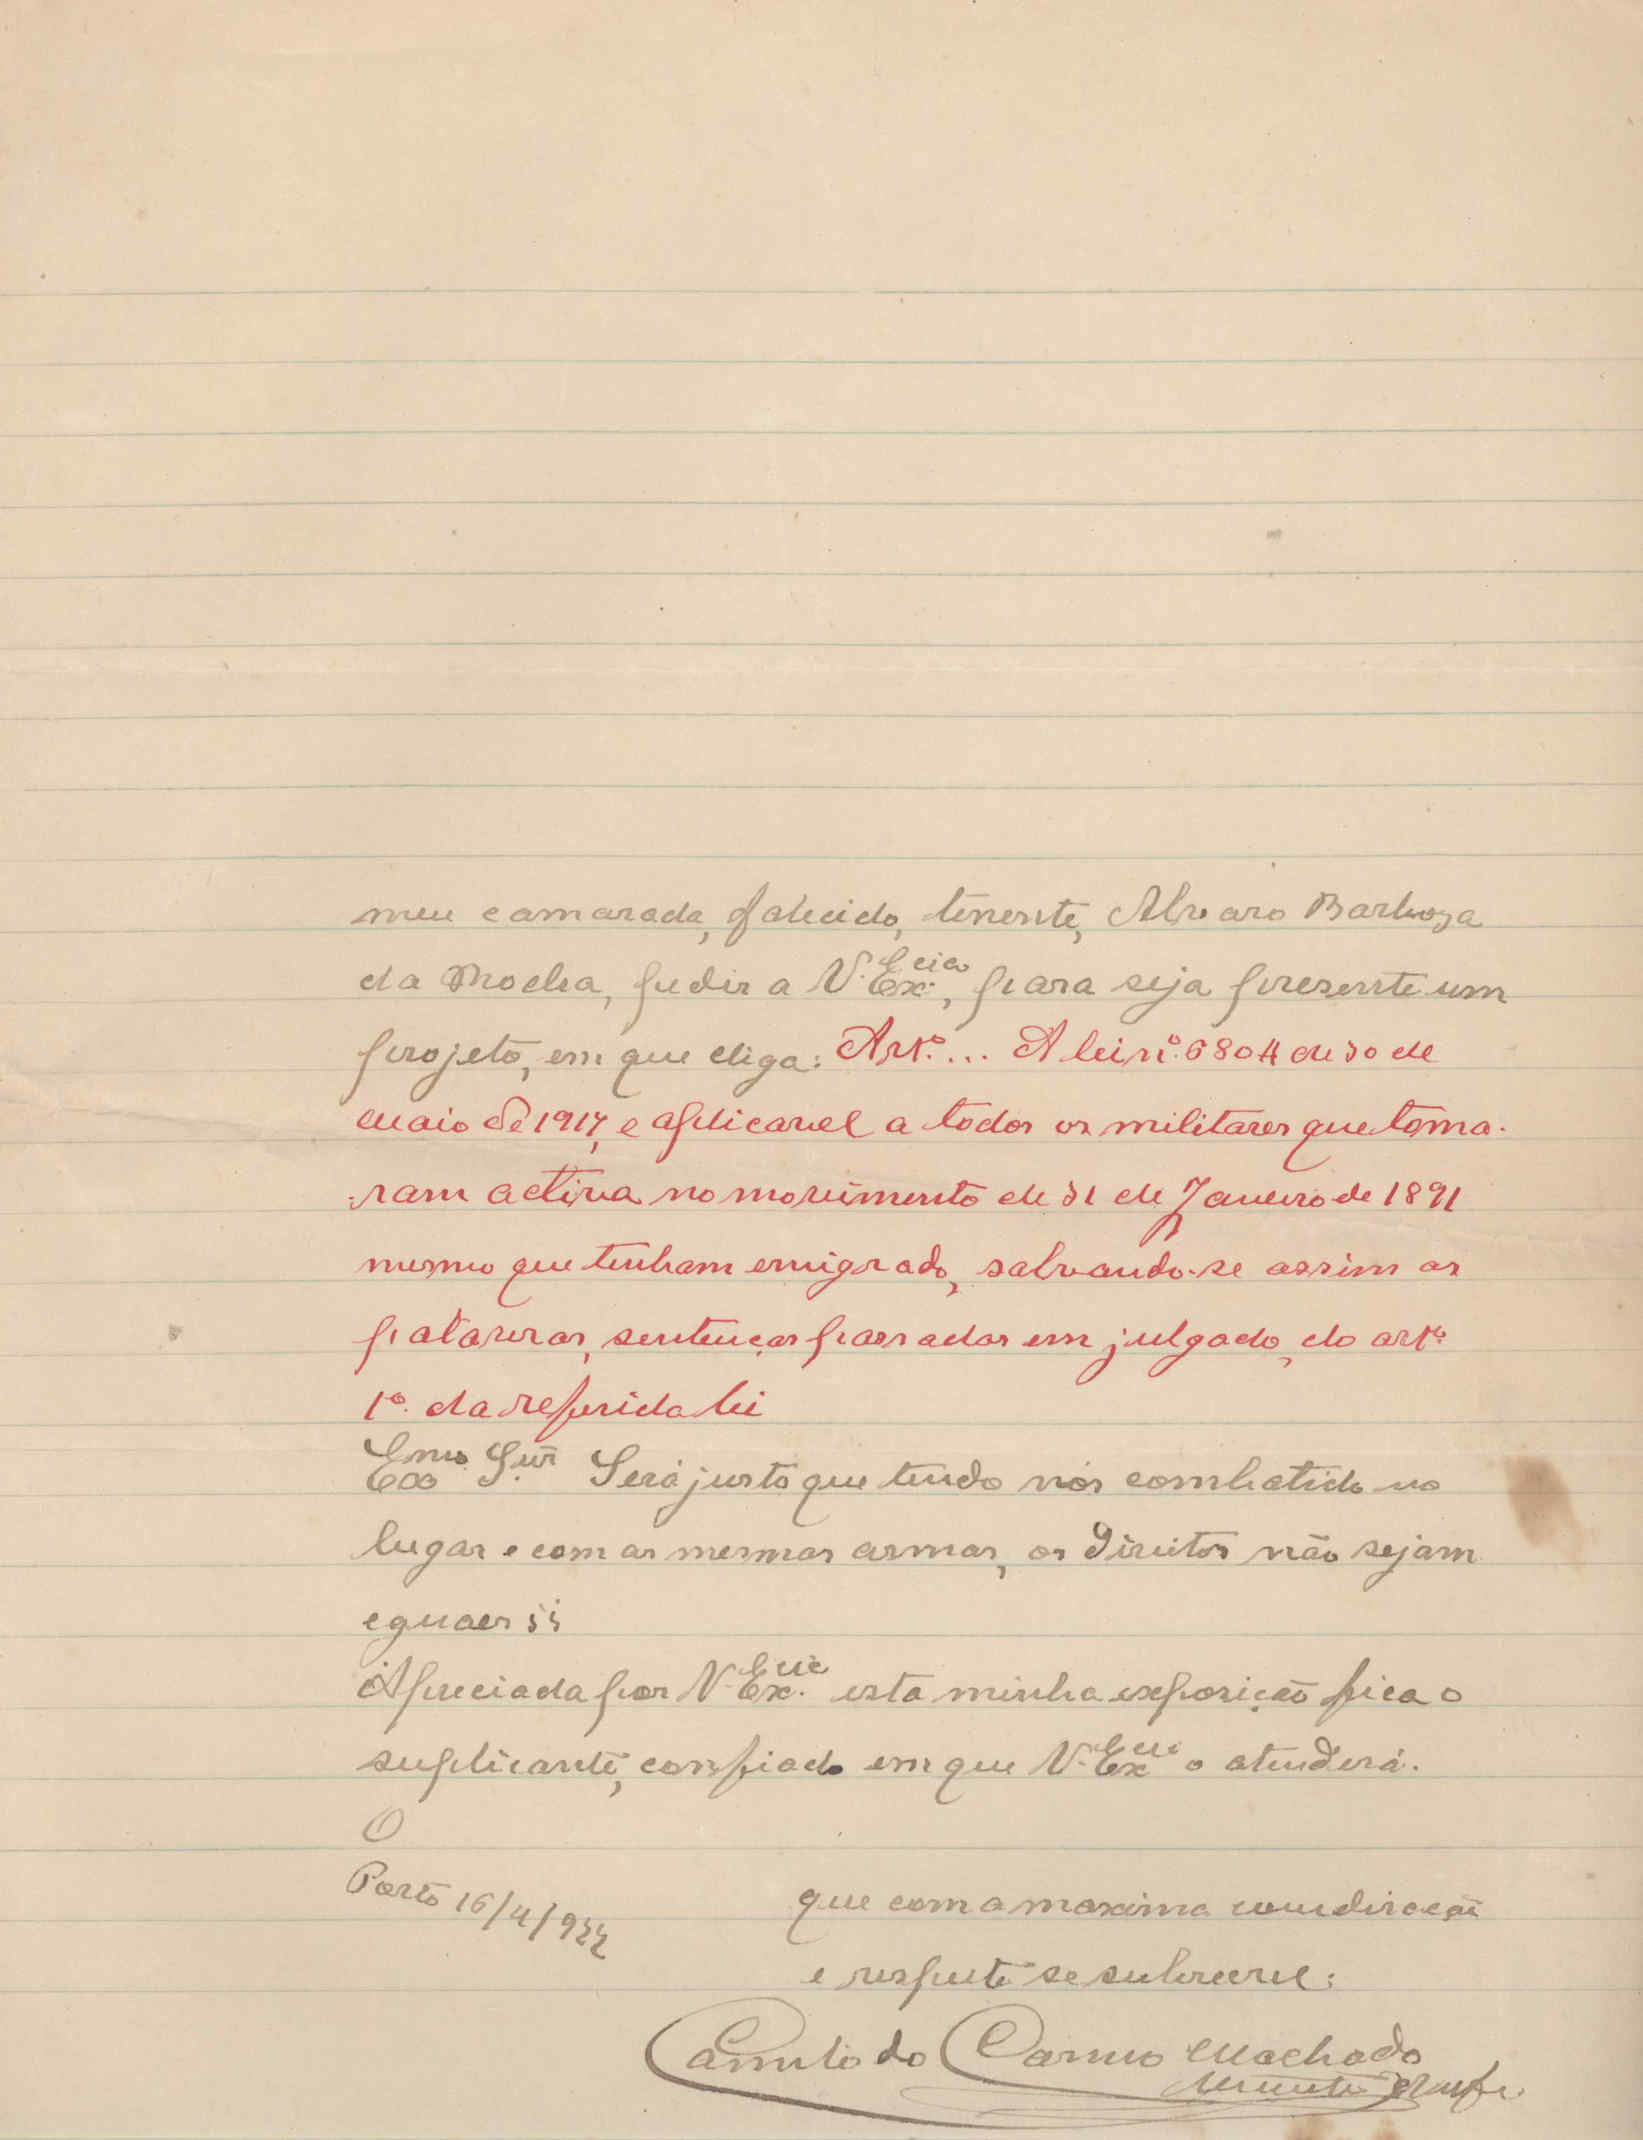 meu camarada, falecido, tenente, Alvaro Barboza
da Rocha, pedir a V. Ex.cia, para seja presente um
projeto, em que diga: Art.º... A lei n.º 6804 de 30 de
Maio de 1917, e aplicavel a todos os militares que toma-
-ram activa no movimento de 31 de Janeiro de 1891
mesmo que tenham emigrado, salvando-se assim as
palavras, sentenças passadas em julgado, do artº.
1º. da referida lei
Exmo. Snr. Será justo que tendo nós combatido no
lugar e com as mesmas armas, os direitos não sejam
eguaes
Apreciada por V. Ex.cia esta minha exposição fica o
suplicante, confiado em que V. Ex.cia o atenderá.
O
Porto 16/4/922
que com a maxima
e respeito se subscreve:
Camilo do Carmo Machado